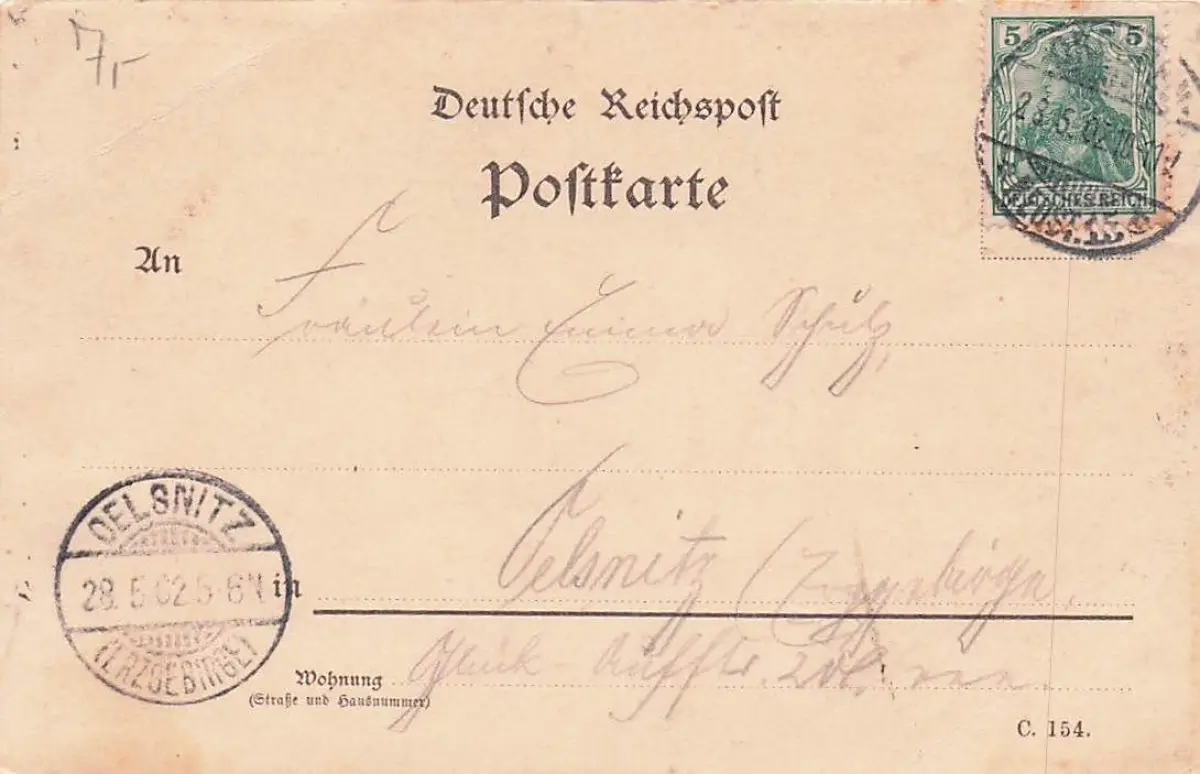 7,-
5 5
Deutsche Reichspost
28.5.02 10-11
DEUTSCHES REICH
Postkarte
An
Fräulein Emma Schulz,
OELSNITZ
28.5.02 5-6N
(ERZGEBIRGE)
in Oelsnitz (Erzgebirge,
Wohnung
(Straße und Hausnummer)
Glück-
C. 154.